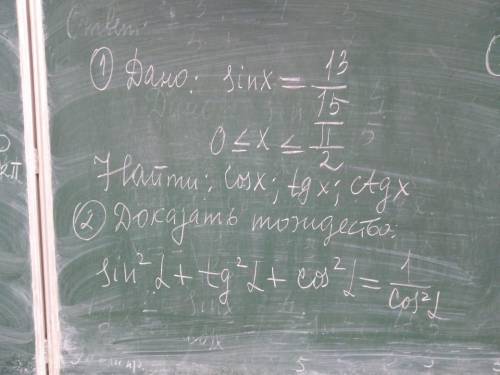 Ответ:
① Дано: sinx = 13/15
0 ≤ x ≤ π/2
Найти; cosx; tgx; ctgx
② Доказать тождество:
sin²α + tg²α + cos²α = 1/cos²α